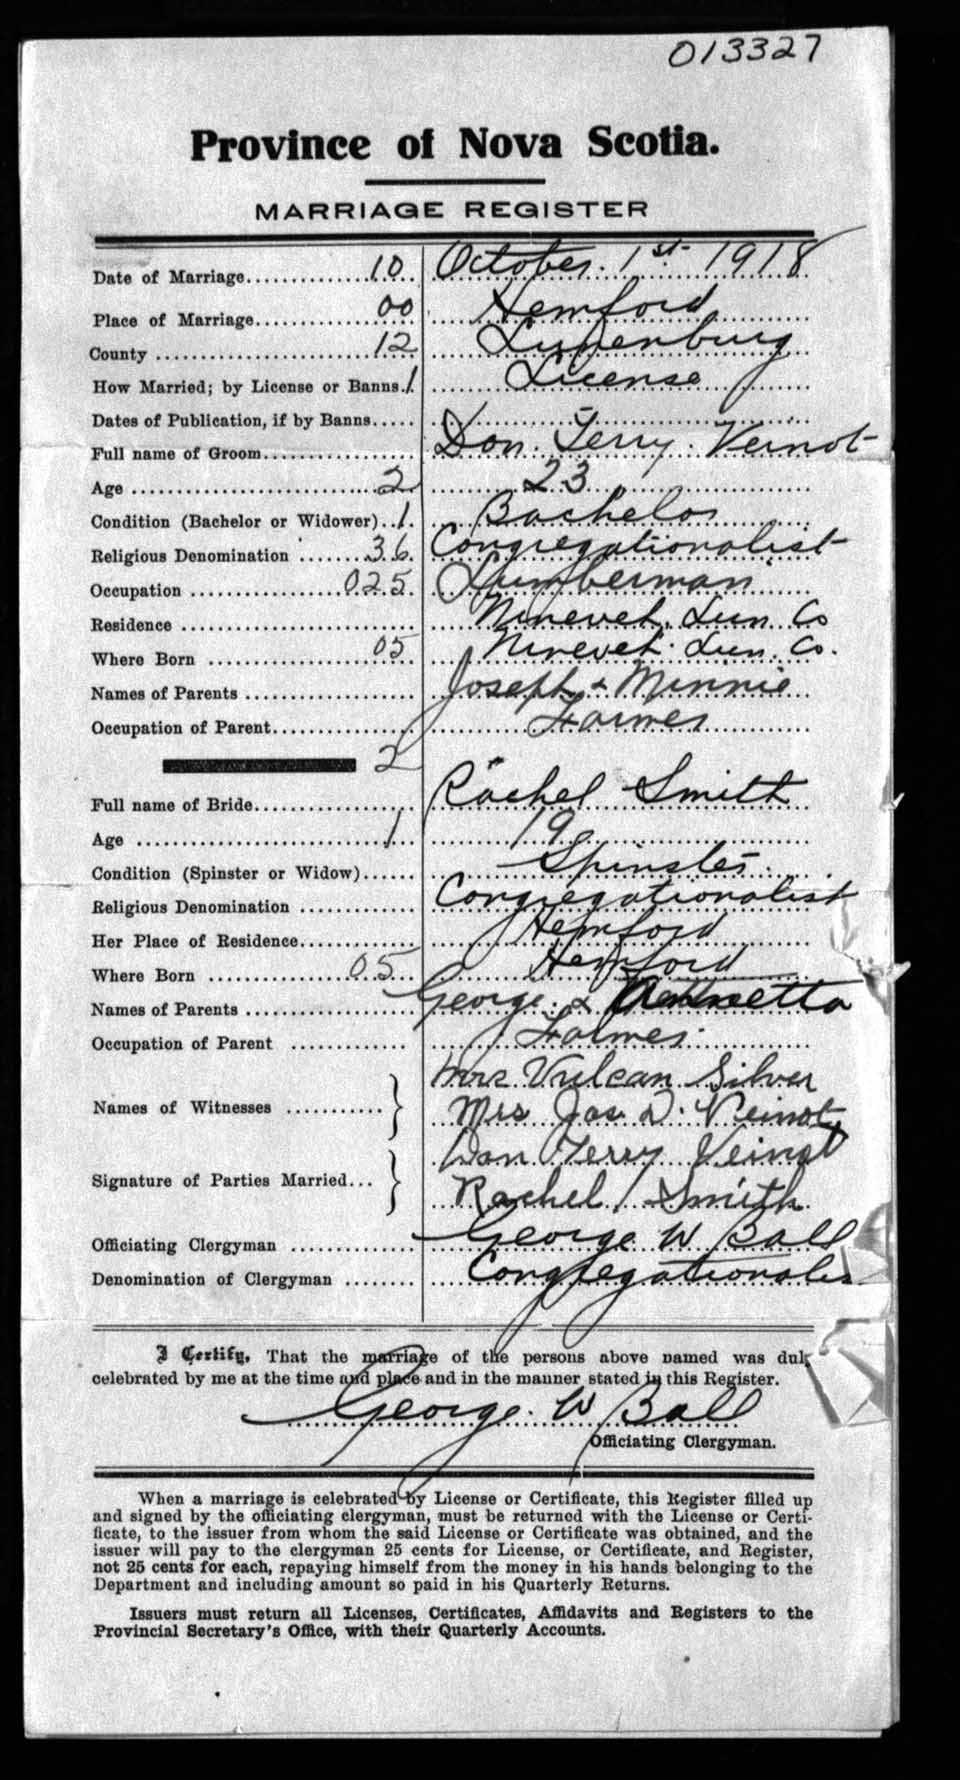 013327
Province of Nova Scotia.
MARRIAGE REGISTER
Date of Marriage 10 October 1st 1918
Place of Marriage 00 Hemford
County 12 Lunenburg
How Married; by License or Banns. 1 License
Dates of Publication, if by Banns
Full name of Groom Don Terry Veinot
Age 2 23
Condition (Bachelor or Widower) 1 Bachelor
Religious Denomination 36 Congregationalist
Occupation 025 Lumberman
Residence Nineveh Lun Co
Where Born 05 Nineveh Lun. Co.
Names of Parents Joseph & Minnie
Occupation of Parent Farmer
2
Full name of Bride Rachel Smith
Age 1 19
Condition (Spinster or Widow) Spinster
Religious Denomination Congregationalist
Her Place of Residence Hemford
Where Born 05 Hemford
Names of Parents George &
Occupation of Parent Farmer
Names of Witnesses Mrs Vulcan Silver
Mrs Jas D. Veinot
Signature of Parties Married Don Terry Veinot
Rachel Smith
Officiating Clergyman George W Ball
Denomination of Clergyman Congregationalis
I Certify, That the marriage of the persons above named was duly
celebrated by me at the time and place and in the manner stated in this Register.
George W Ball
Officiating Clergyman.
When a marriage is celebrated by License or Certificate, this Register filled up
and signed by the officiating clergyman, must be returned with the License or Certi-
ficate, to the issuer from whom the said License or Certificate was obtained, and the
issuer will pay to the clergyman 25 cents for License, or Certificate, and Register,
not 25 cents for each, repaying himself from the money in his hands belonging to the
Department and including amount so paid in his Quarterly Returns.
Issuers must return all Licenses, Certificates, Affidavits and Registers to the
Provincial Secretary's Office, with their Quarterly Accounts.